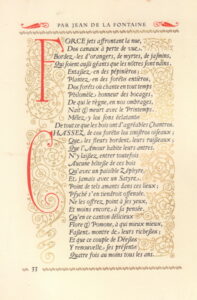 PAR JEAN DE LA FONTAINE
FORCE jets affrontant la nue,
Des canaux à perte de vue,
Bordez-les d'orangers, de myrtes, de jasmins,
Qui soient aussi géants que les nôtres sont nains;
Entassez-en des pépinières;
Plantez-en des forêts entières,
Des forêts où chante en tout temps
Philomèle, honneur des bocages,
De qui le règne, en nos ombrages,
Naît & meurt avec le Printemps.
Mêlez-y les sons éclatants
De tout ce que les bois ont d'agréables Chantres.
CHASSEZ de ces forêts les sinistres oiseaux;
Que les fleurs bordent leurs ruisseaux;
Que l'Amour habite leurs antres.
N'y laissez entrer toutefois
Aucune hôtesse de ces bois
Qu'avec un paisible Zéphyre,
Et jamais avec un Satyre.
Point de tels amants dans ces lieux;
Psyché s'en tiendrait offensée.
Ne les offrez point à ses yeux,
Et moins encore à sa pensée.
Qu'en ce canton délicieux
Flore & Pomone, à qui mieux mieux,
Fassent montre de leurs richesses;
Et que ce couple de Déesses
Y renouvelle ses présents
Quatre fois au moins tous les ans.